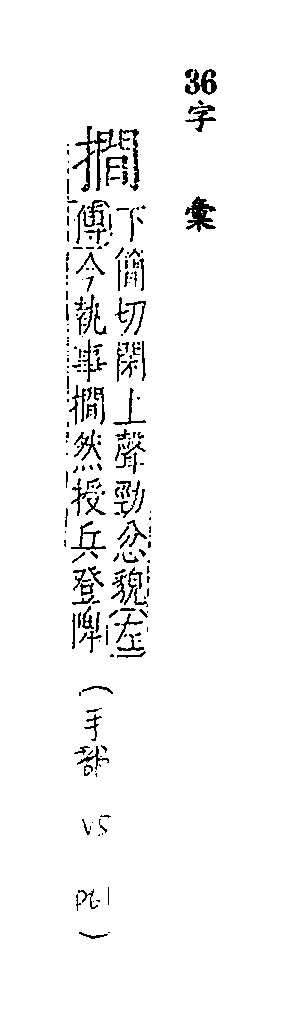 36字彙
撊
下簡切閑上聲勁忿貌左
傳今執事撊然授兵登陴
(手部 V5 P61)